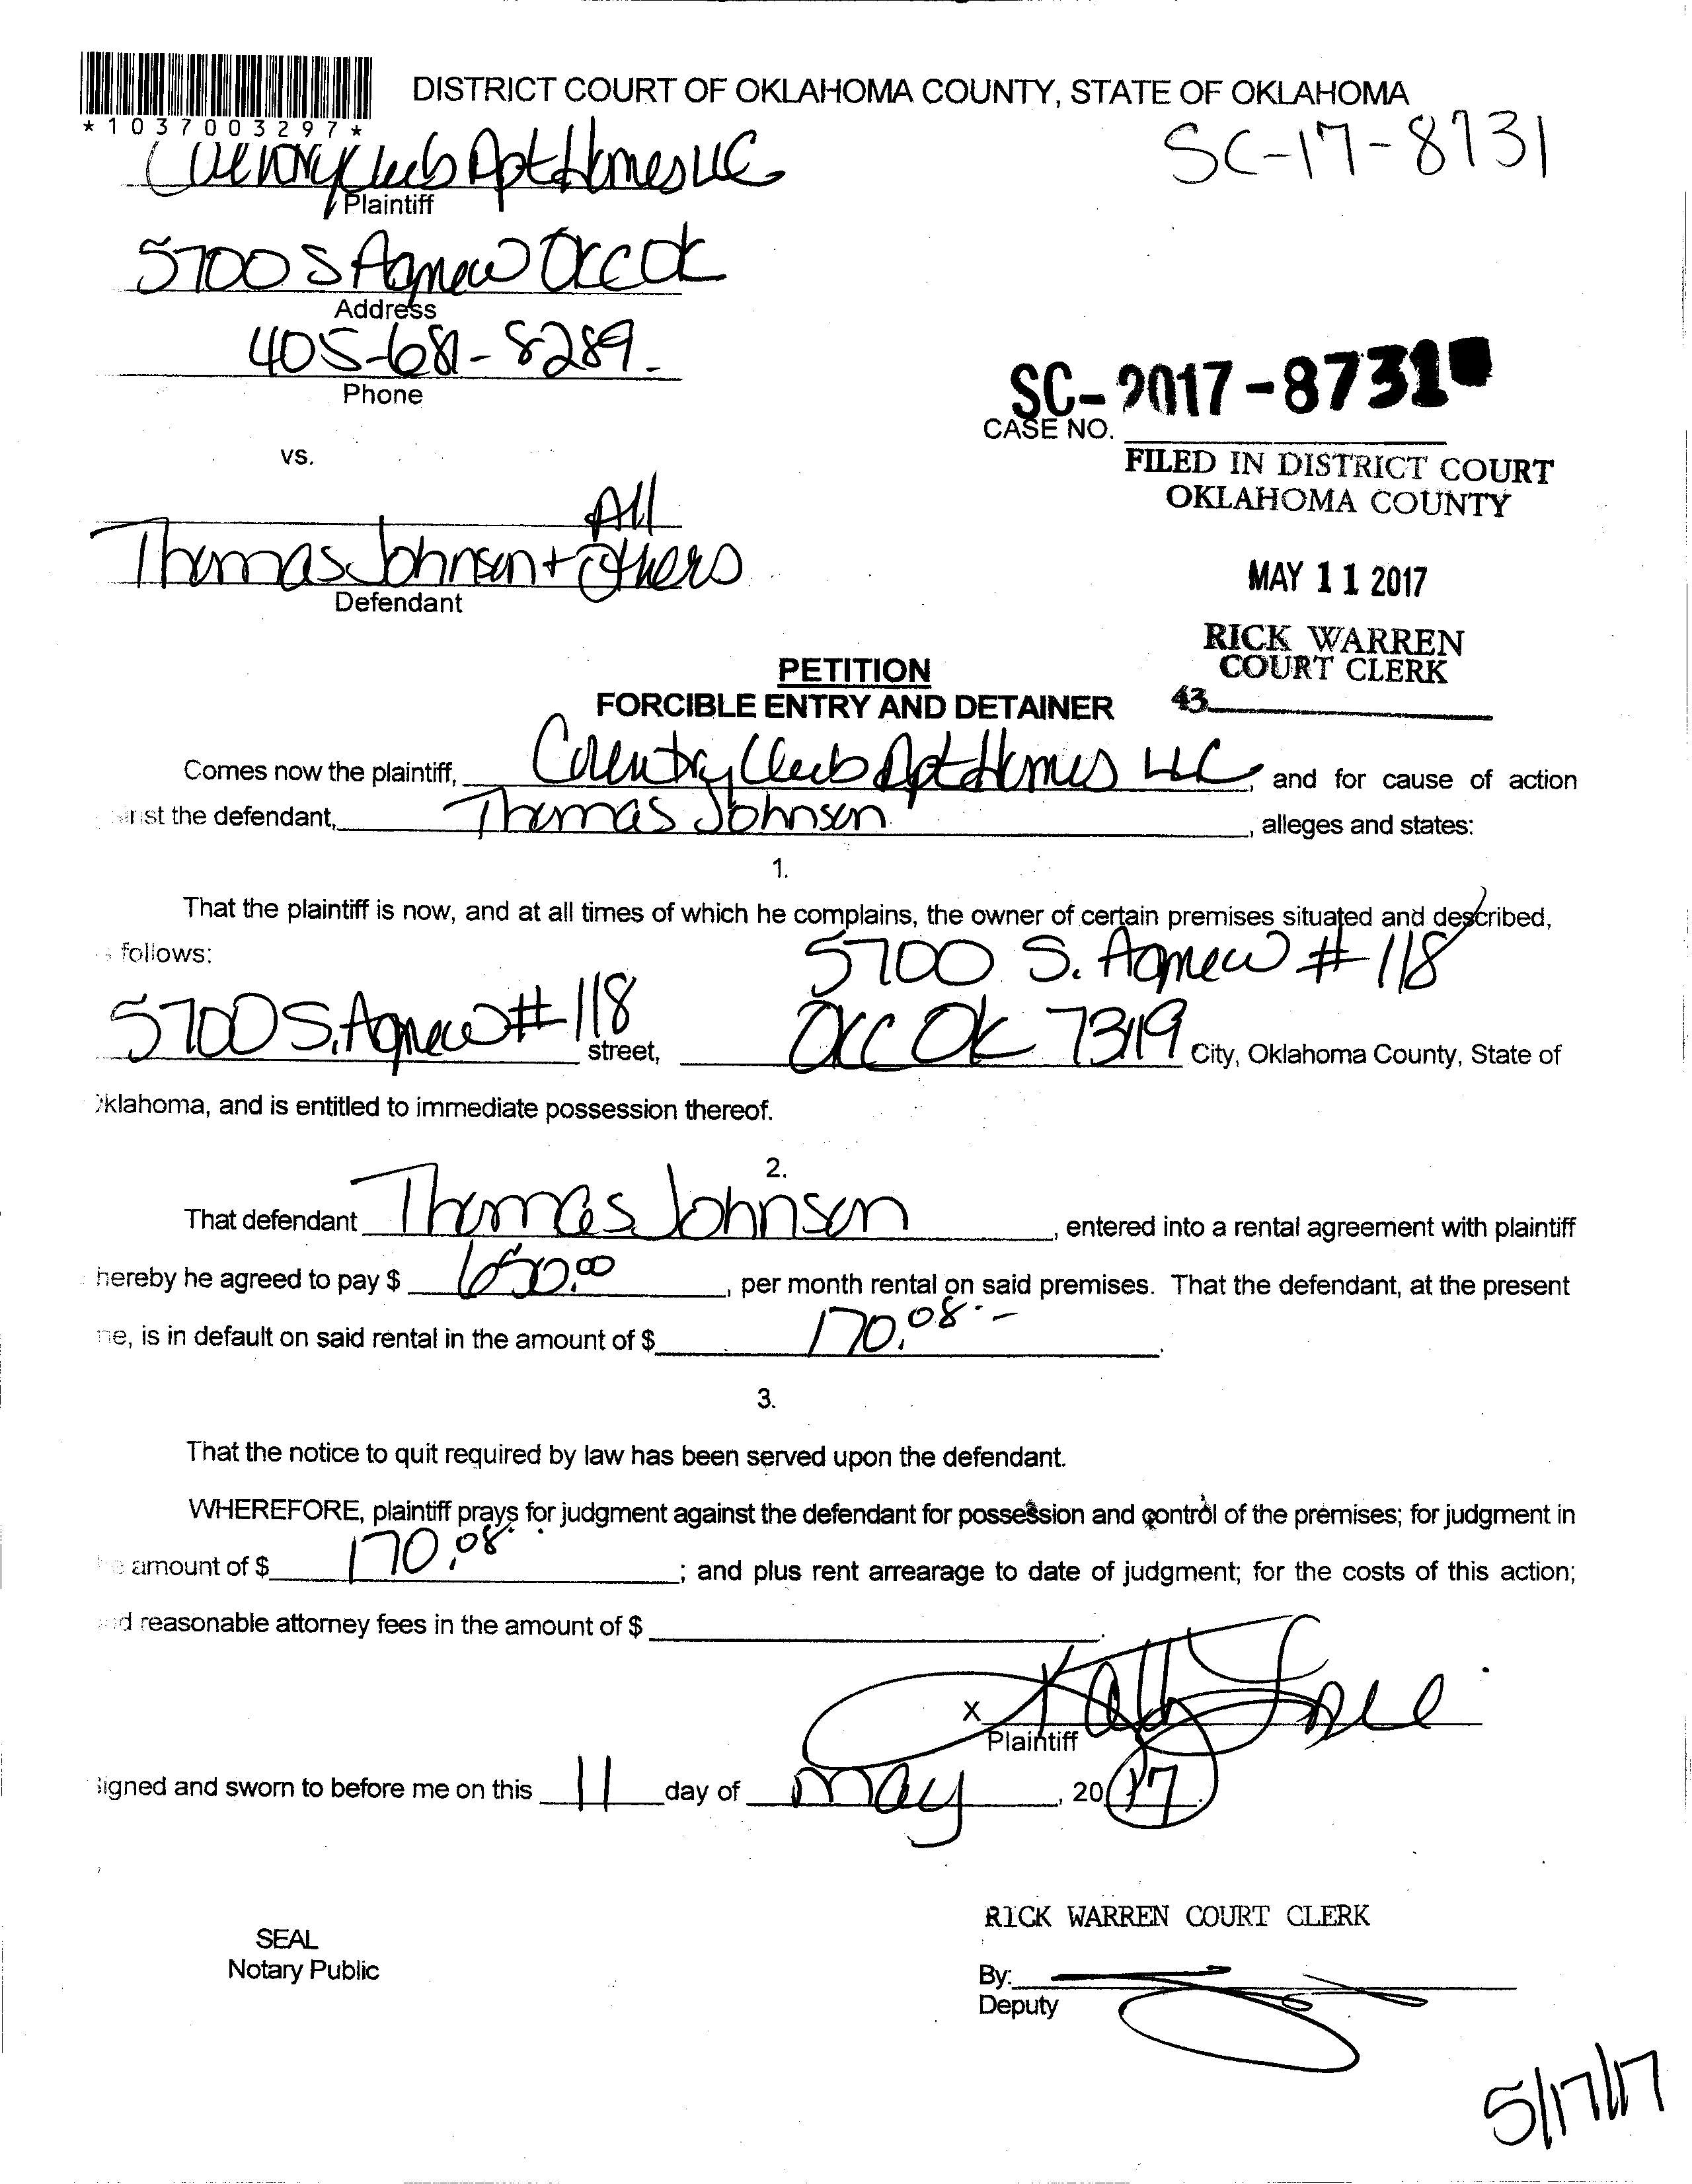 DISTRICT COURT OF OKLAHOMA COUNTY, STATE OF OKLAHOMA
*1037003297*
SC-17-8731
Country Club Apt Homes LLC
Plaintiff
5700 S Agnew OKC OK
Address
405-681-8289
Phone
SC-2017-8731
CASE NO.
vs.
FILED IN DISTRICT COURT
OKLAHOMA COUNTY
All
Thomas Johnson + Others
Defendant
MAY 11 2017
RICK WARREN
COURT CLERK
43
PETITION
FORCIBLE ENTRY AND DETAINER
Comes now the plaintiff, Country Club Apt Homes LLC, and for cause of action
inst the defendant, Thomas Johnson, alleges and states:
1.
That the plaintiff is now, and at all times of which he complains, the owner of certain premises situated and described,
follows:
5700 S. Agnew #118
5700 S. Agnew #118 street, OKC OK 73119 City, Oklahoma County, State of
klahoma, and is entitled to immediate possession thereof.
2.
That defendant Thomas Johnson, entered into a rental agreement with plaintiff
hereby he agreed to pay $ 650.00, per month rental on said premises. That the defendant, at the present
ne, is in default on said rental in the amount of $ 170.08.
3.
That the notice to quit required by law has been served upon the defendant.
WHEREFORE, plaintiff prays for judgment against the defendant for possession and control of the premises; for judgment in
amount of $ 170.08; and plus rent arrearage to date of judgment; for the costs of this action;
d reasonable attorney fees in the amount of $
X
Plaintiff
igned and sworn to before me on this 11 day of May, 2017.
RICK WARREN COURT CLERK
SEAL
Notary Public
By:
Deputy
5/17/17